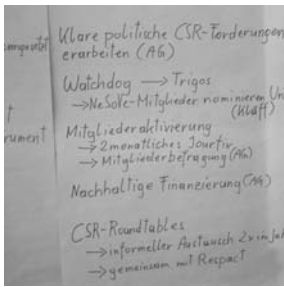 Klare politische CSR-Forderungen
erarbeiten (AG)
Watchdog → Trigos
→ NeSoVe-Mitglieder nominieren Un
(Kläff)
Mitgliederaktivierung
→ 2monatliches Jourfix
→ Mitgliederbefragung (AG)
Nachhaltige Finanzierung (AG)
CSR-Roundtables
→ informeller Austausch 2x im Jah
→ gemeinsam mit Respact
rument